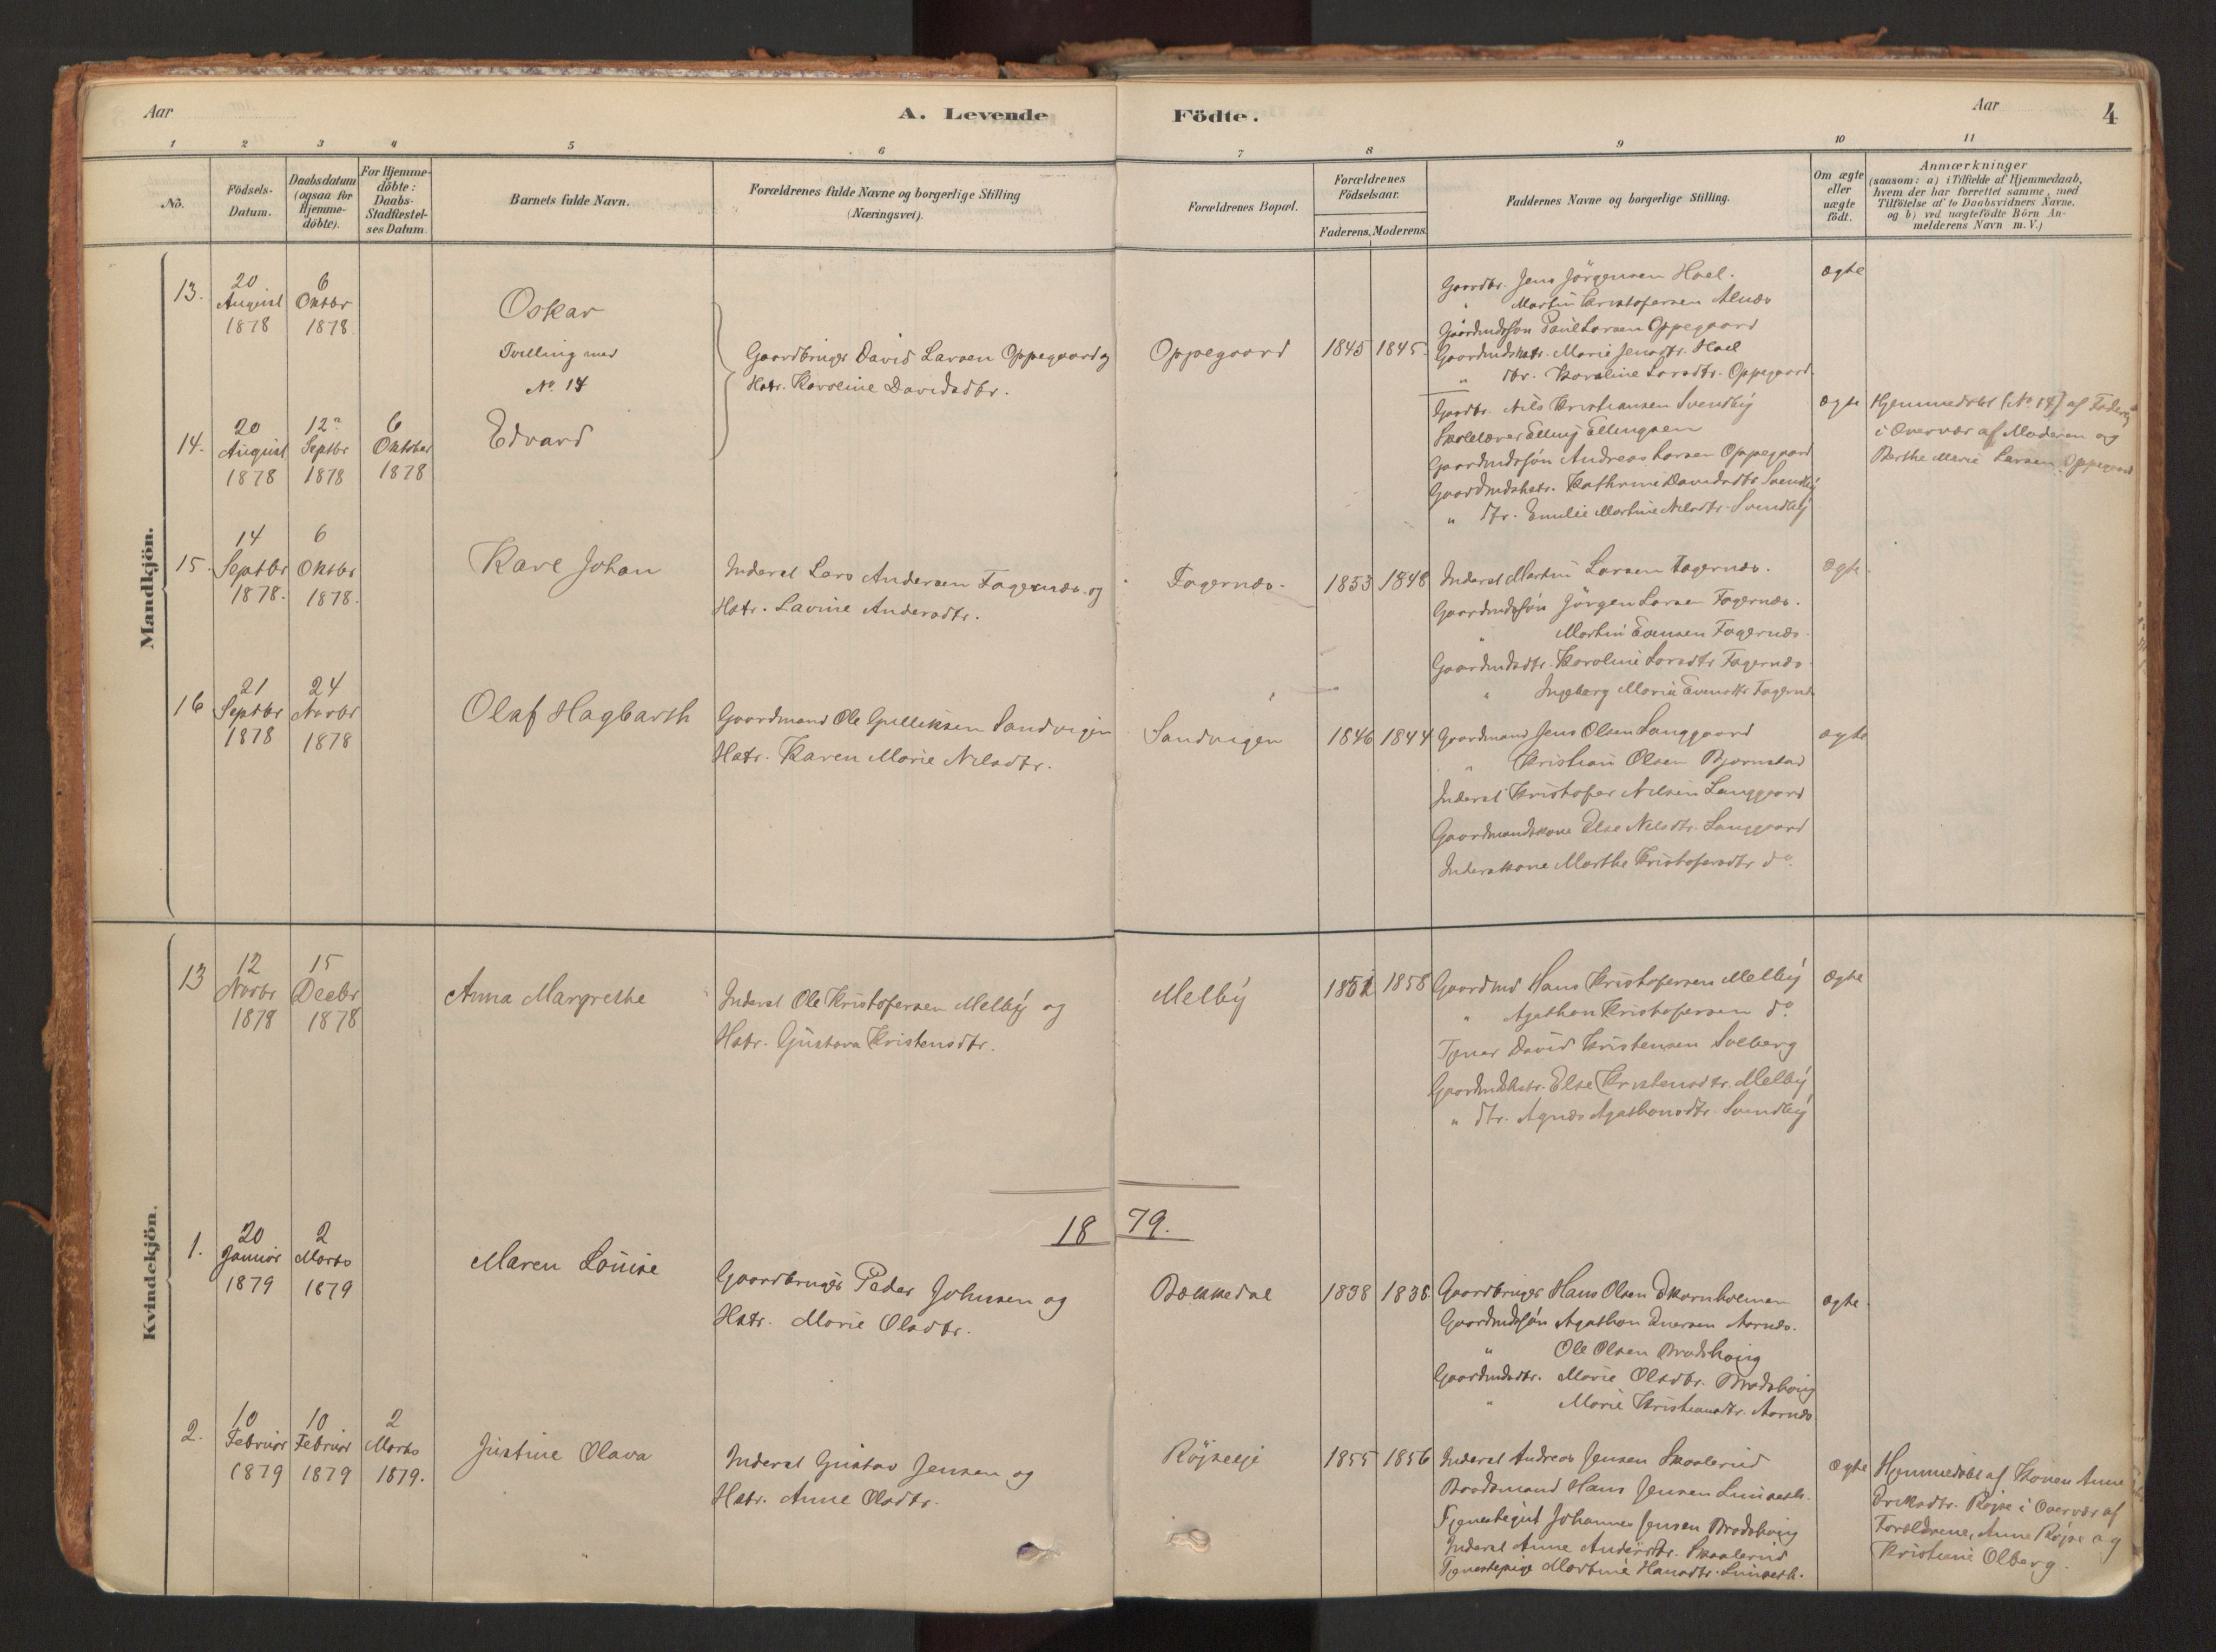 Aar
A. Levende
Födte.
Aar
4
1 2 3 4 5 6 7 8 9 10 11
No.
Födsels-
Datum.
Daabsdatum
(ogsaa for
Hjemme-
döbte).
For Hjemme-
döbte:
Daabs-
Stadfæstel-
ses Datum.
Barnets fulde Navn.
Forældrenes fulde Navne og borgerlige Stilling
(Næringsvei).
Forældrenes Bopæl.
Forældrenes
Födselsaar.
Faderens. Moderens.
Faddernes Navne og borgerlige Stilling.
Om ægte
eller
uægte
födt.
Anmærkninger
(saasom: a) i Tilfælde af Hjemmedaab,
hvem der har forrettet samme, med
Tilföielse af to Daabsvidners Navne,
og b) ved uægtefödte Börn An-
melderens Navn m. V.)
Mandkjön.
13.
20
August
1878
6
Oktbr
1878
Oskar
Tvilling med
No 14
Gaardbruger David Larsen Oppegaard og
Hstr. Karoline Davidsdtr.
Oppegaard
1845 1845
Gaardbr. Jens Jörgensen Hoel.
" Martin Kristofersen Alnæs
Gaardmdssön Paul Larsen Oppegaard
Gaardmdshstr. Marie Jensdtr. Hoel
" dtr. Karoline Larsdtr. Oppegaard
ægte
14.
20
August
1878
12
Septbr
1878
6
Oktober
1878
Edvard
Gaardbr. Nils Kristiansen Svendby
Skolelærer Elling Ellingsen
Gaardmdssön Andreas Larsen Oppegaard
Gaardmdshstr. Kathrine Davidsdtr Svendby
" dtr. Emilie Martine Nilsdtr. Svendby
ægte
Hjemmedöbt (No 14) af Faderen
i Overvær af Moderen og
Berthe Marie Larsen Oppegaard
15.
14
Septbr
1878.
6
Oktbr
1878.
Karl Johan
Inderst Lars Andersen Fagernæs og
Hstr. Lavine Andersdtr.
Fagernæs.
1853 1848
Inderst Martin Larsen Fagernæs.
Gaardmdssön Jörgen Larsen Fagernæs.
" Martin Evensen Fagernæs.
Gaardmdsdtr. Karoline Larsdtr Fagernæs
" Ingeborg Marie Evensdtr Fagernæs
ægte.
16
21
Septbr
1878
24
Novbr
1878
Olaf Hagbarth
Gaardmand Ole Gulliksen Sandvigen
Hstr. Karen Marie Nilsdtr.
Sandvigen
1846 1844
Gaardmand Jens Olsen Langgaard
" Kristian Olsen Bjørnstad
Inderst Kristofer Nilsen Langgaard
Gaardmandskone Else Nilsdtr. Langgaard
Inderskone Marthe Kristofersdtr do.
ægte
Kvindekjön.
13
12
Novbr
1878
15
Decbr
1878
Anna Margrethe
Inderst Ole Kristofersen Melby og
Hstr. Gustava Kristensdtr.
Melby
1852 1858
Gaardmd Hans Kristofersen Melby
" Agathon Kristofersen do.
Tjener David Kristensen Solberg
Gaardmdshstr. Else Kristensdtr. Melby
" dtr. Agnes Agathonsdtr. Svendby
ægte
1879.
1.
20
Januar
1879
2
Marts
1879
Maren Louise
Gaardbruger Peder Johnsen og
Hstr. Marie Olsdtr.
Bækkedal
1838 1838
Gaardbruger Hans Olsen Skornholmen
Gaardmdssön Agathon Iversen Aarnæs.
" Ole Olsen Bradshoug
Gaardmdsdtr. Marie Olsdtr. Bradshoug
" Marie Kristiansdtr. Aarnæs
ægte.
2.
10
Februar
1879
10
Februar
1879
2
Marts
1879.
Justine Olava
Inderst Gustav Jensen og
Hstr. Anne Olsdtr.
Röjseeje
1855 1856
Inderst Andreas Jensen Skaalerud
Baadsmand Hans Jensen
Tjenestegut Johannes Jensen Bradshoug
Inderst Anne Andersdtr. Skaalerud
Tjenestepige Martine Hansdtr.
ægte
Hjemmedöbt af Konen Anne
Eriksdtr. Röjse i Overvær af
Forældrene, Anne Röjse og
Kristiane Olberg.